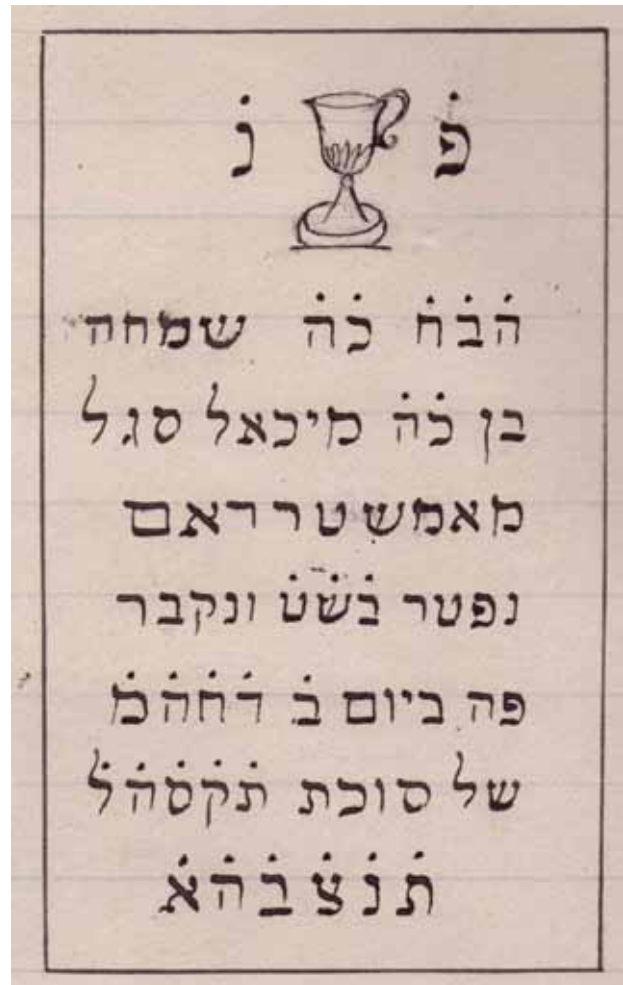 פׄ נׄ
הׄבׄחׄ כׄהׄ שמחה
בן כׄהׄ מיכאל סגל
מאמשטרראם
נפטר בׄשׄטׄ ונקבר
פה ביום בׄ דׄחׄהׄמׄ
של סוכת תׄקׄסׄהׄלׄ
תׄנׄצׄבׄהׄאׄ